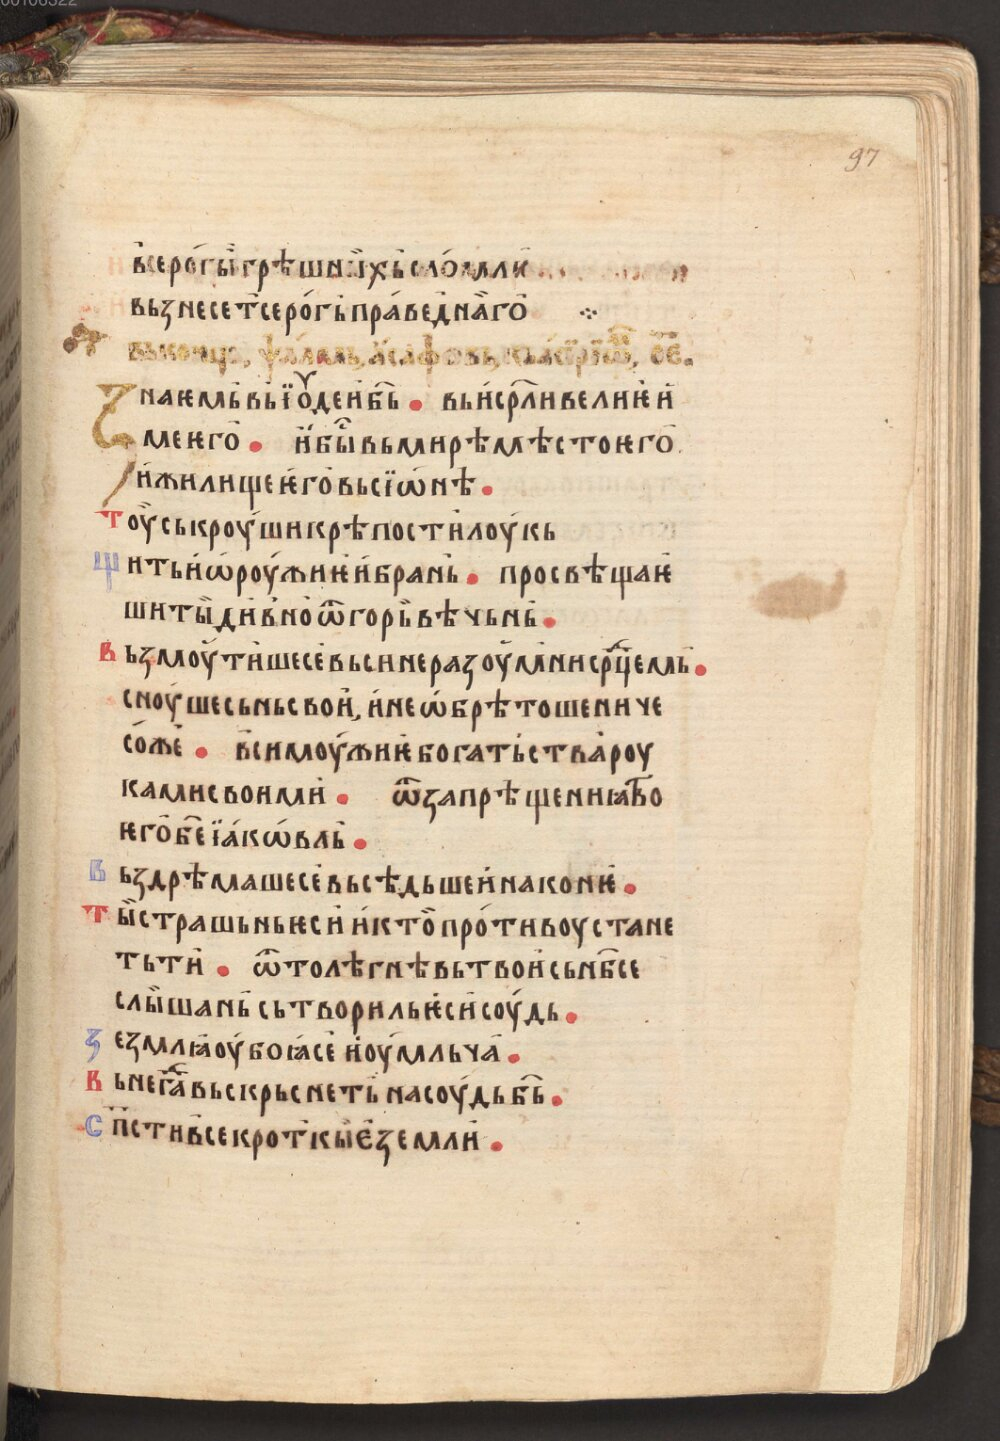 97
все роги грѣшныхь сломлѥ
вьзнесетсе рогь праведнаго
вь коньць, ѱаломь, асафовь, кь асѵрїѡⷨ, ое҃.
Знаѥмь вь їоудеи б҃ь. вь ис҃рли велиѥ и
ме ѥго. и быⷭ вь мирѣ мѣсто ѥго
и жилище ѥго вь сїѡнѣ.
Тоу ськроуши крѣпости лоукь
щить и ѡроужиѥ и брань. просвѣщаѥ
ши ты дивно ѿ горь вѣчьнь.
Вьзмоутише се вьси неразоумни срⷣцемь.
сноуше сьнь свои, и не ѡбрѣтоше ниче
соже. вси моужиѥ богатьства роу
ками своими. ѿ запрѣщениꙗ тво
ѥго б҃е їаковль.
Вьздрѣмаше се вьсѣдьшеи на конѥ.
Ты страшьнь ѥси и кто противоу стане
ть ти. ѿтолѣ гнѣвь твои сь нб҃се
слышань сьтвориль ѥси соудь.
Земла оубоꙗ се и оумльча.
Вьнегⷣа вьскрьснеть на соудь б҃ь.
Сп҃сти все кроткые земли.